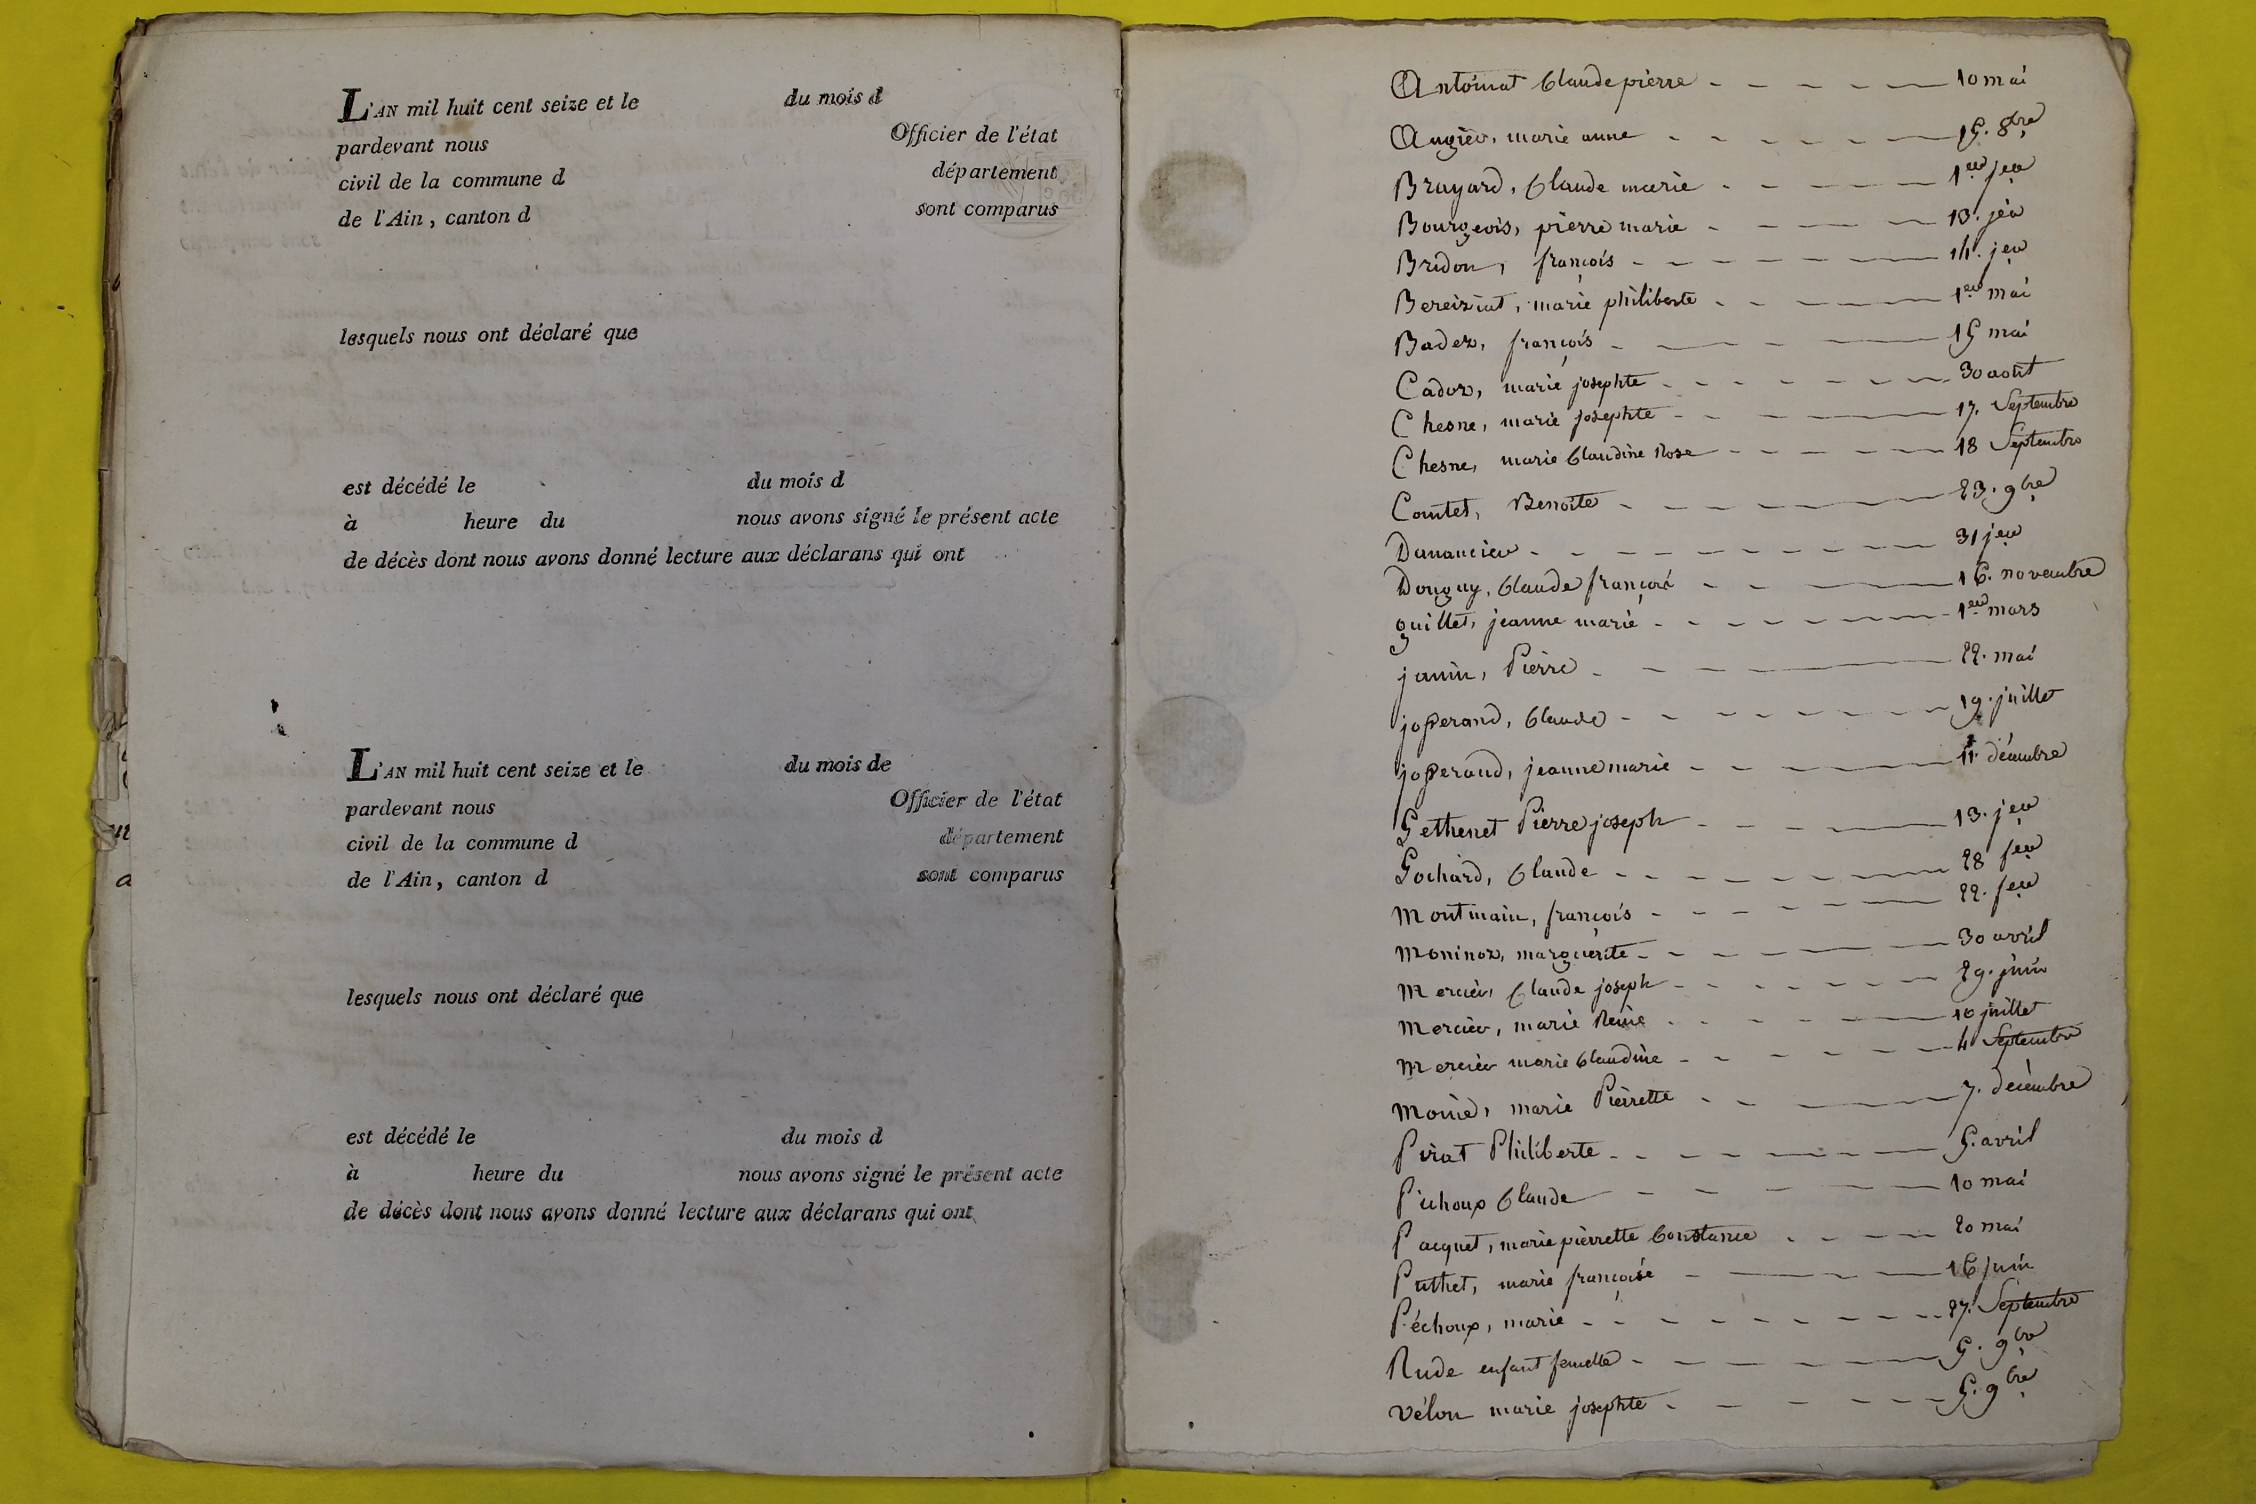 L'AN mil huit cent seize et le du mois d
pardevant nous Officier de l'état
civil de la commune d département
de l'Ain, canton d sont comparus
lesquels nous ont déclaré que
est décédé le du mois d
à heure du nous avons signé le présent acte
de décès dont nous avons donné lecture aux déclarans qui ont
L'AN mil huit cent seize et le du mois de
pardevant nous Officier de l'état
civil de la commune d département
de l'Ain, canton d sont comparus
lesquels nous ont déclaré que
est décédé le du mois d
à heure du nous avons signé le présent acte
de décès dont nous avons donné lecture aux déclarans qui ont
Antoinat Claude pierre 10 mai
Augier, marie anne 15. 8bre
Bruyard, Claude marie 1er jer
Bourgeois, pierre marie 13. jer
Bridon, françois 14. jer
Bereiziat, marie philiberte 1er mai
Badez, françois 15 mai
Cadoz, marie josephte 30 août
Chesne, marie josephte 17. Septembre
Chesne, marie Claudine Rose 18 Septembre
Comtet, Benoite 23. 9bre
Danancier 31 jer
Douguy, Claude françois 16. novembre
guillet, jeanne marie 1er mars
janin, Pierre 22. mai
josserand, Claude 19. juillet
josserand, jeanne marie 11. décembre
Gethenet Pierre joseph 13. jer
Gochard, Claude 28 fer
Montmain, françois 22. fer
Moninoz, marguerite 30 avril
Mercier, Claude joseph 29. juin
Mercier, marie Reine 10 juillet
Mercier marie Claudine 4 Septembre
marie Pierrette 7. decembre
Pirat Philiberte 5. avril
Pichoux Claude 10 mai
Pacquet, marie pierrette Constance 20 mai
Puthet, marie françoise 16 juin
Péchoux, marie 27. Septembre
Rude enfant femelle 5. 9bre
Vélon marie josephte 5. 9bre